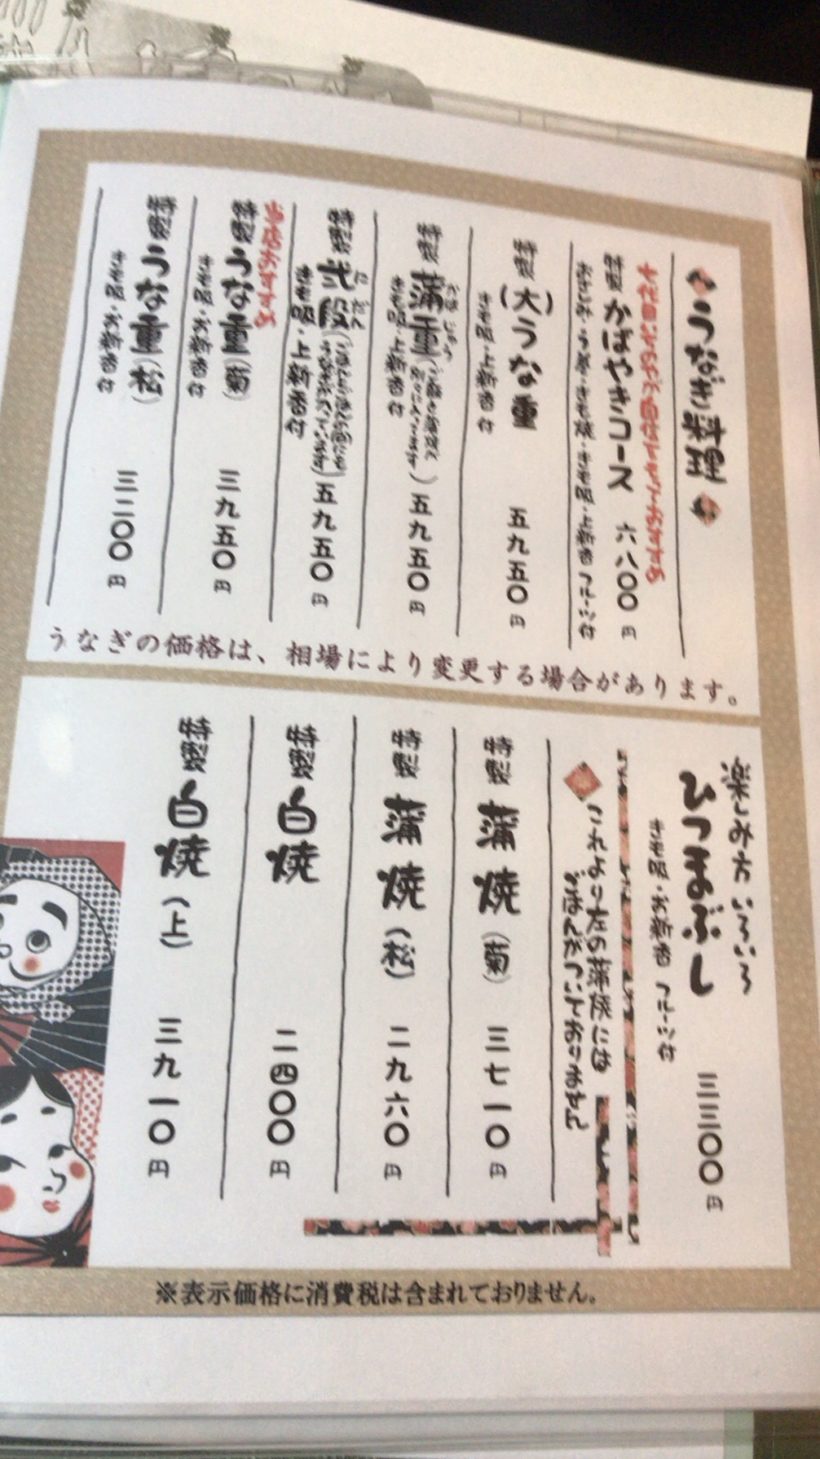 うなぎ料理
七代目いそのやが自信でもっておすすめ
特製 かばやきコース 六八〇〇円
おさしみ・う巻・きも焼・きも吸・上新香 フルーツ付
特製 (大)うな重 五九五〇円
きも吸・上新香付
特製 蒲重 五九五〇円
かば じゅう
きも吸・上新香付
特製 弐段 五九五〇円
に だん
きも吸・上新香付
当店おすすめ
特製 うな重(菊) 三九五〇円
きも吸・お新香付
特製 うな重(松) 三二〇〇円
きも吸・お新香付
うなぎの価格は、相場により変更する場合があります。
楽しみ方いろいろ
ひつまぶし 三三〇〇円
きも吸・お新香 フルーツ付
これより左の蒲焼には
ごはんがついておりません
特製 蒲焼(菊) 三七一〇円
特製 蒲焼(松) 二九六〇円
特製 白焼 二四〇〇円
特製 白焼(上) 三九一〇円
※表示価格に消費税は含まれておりません。